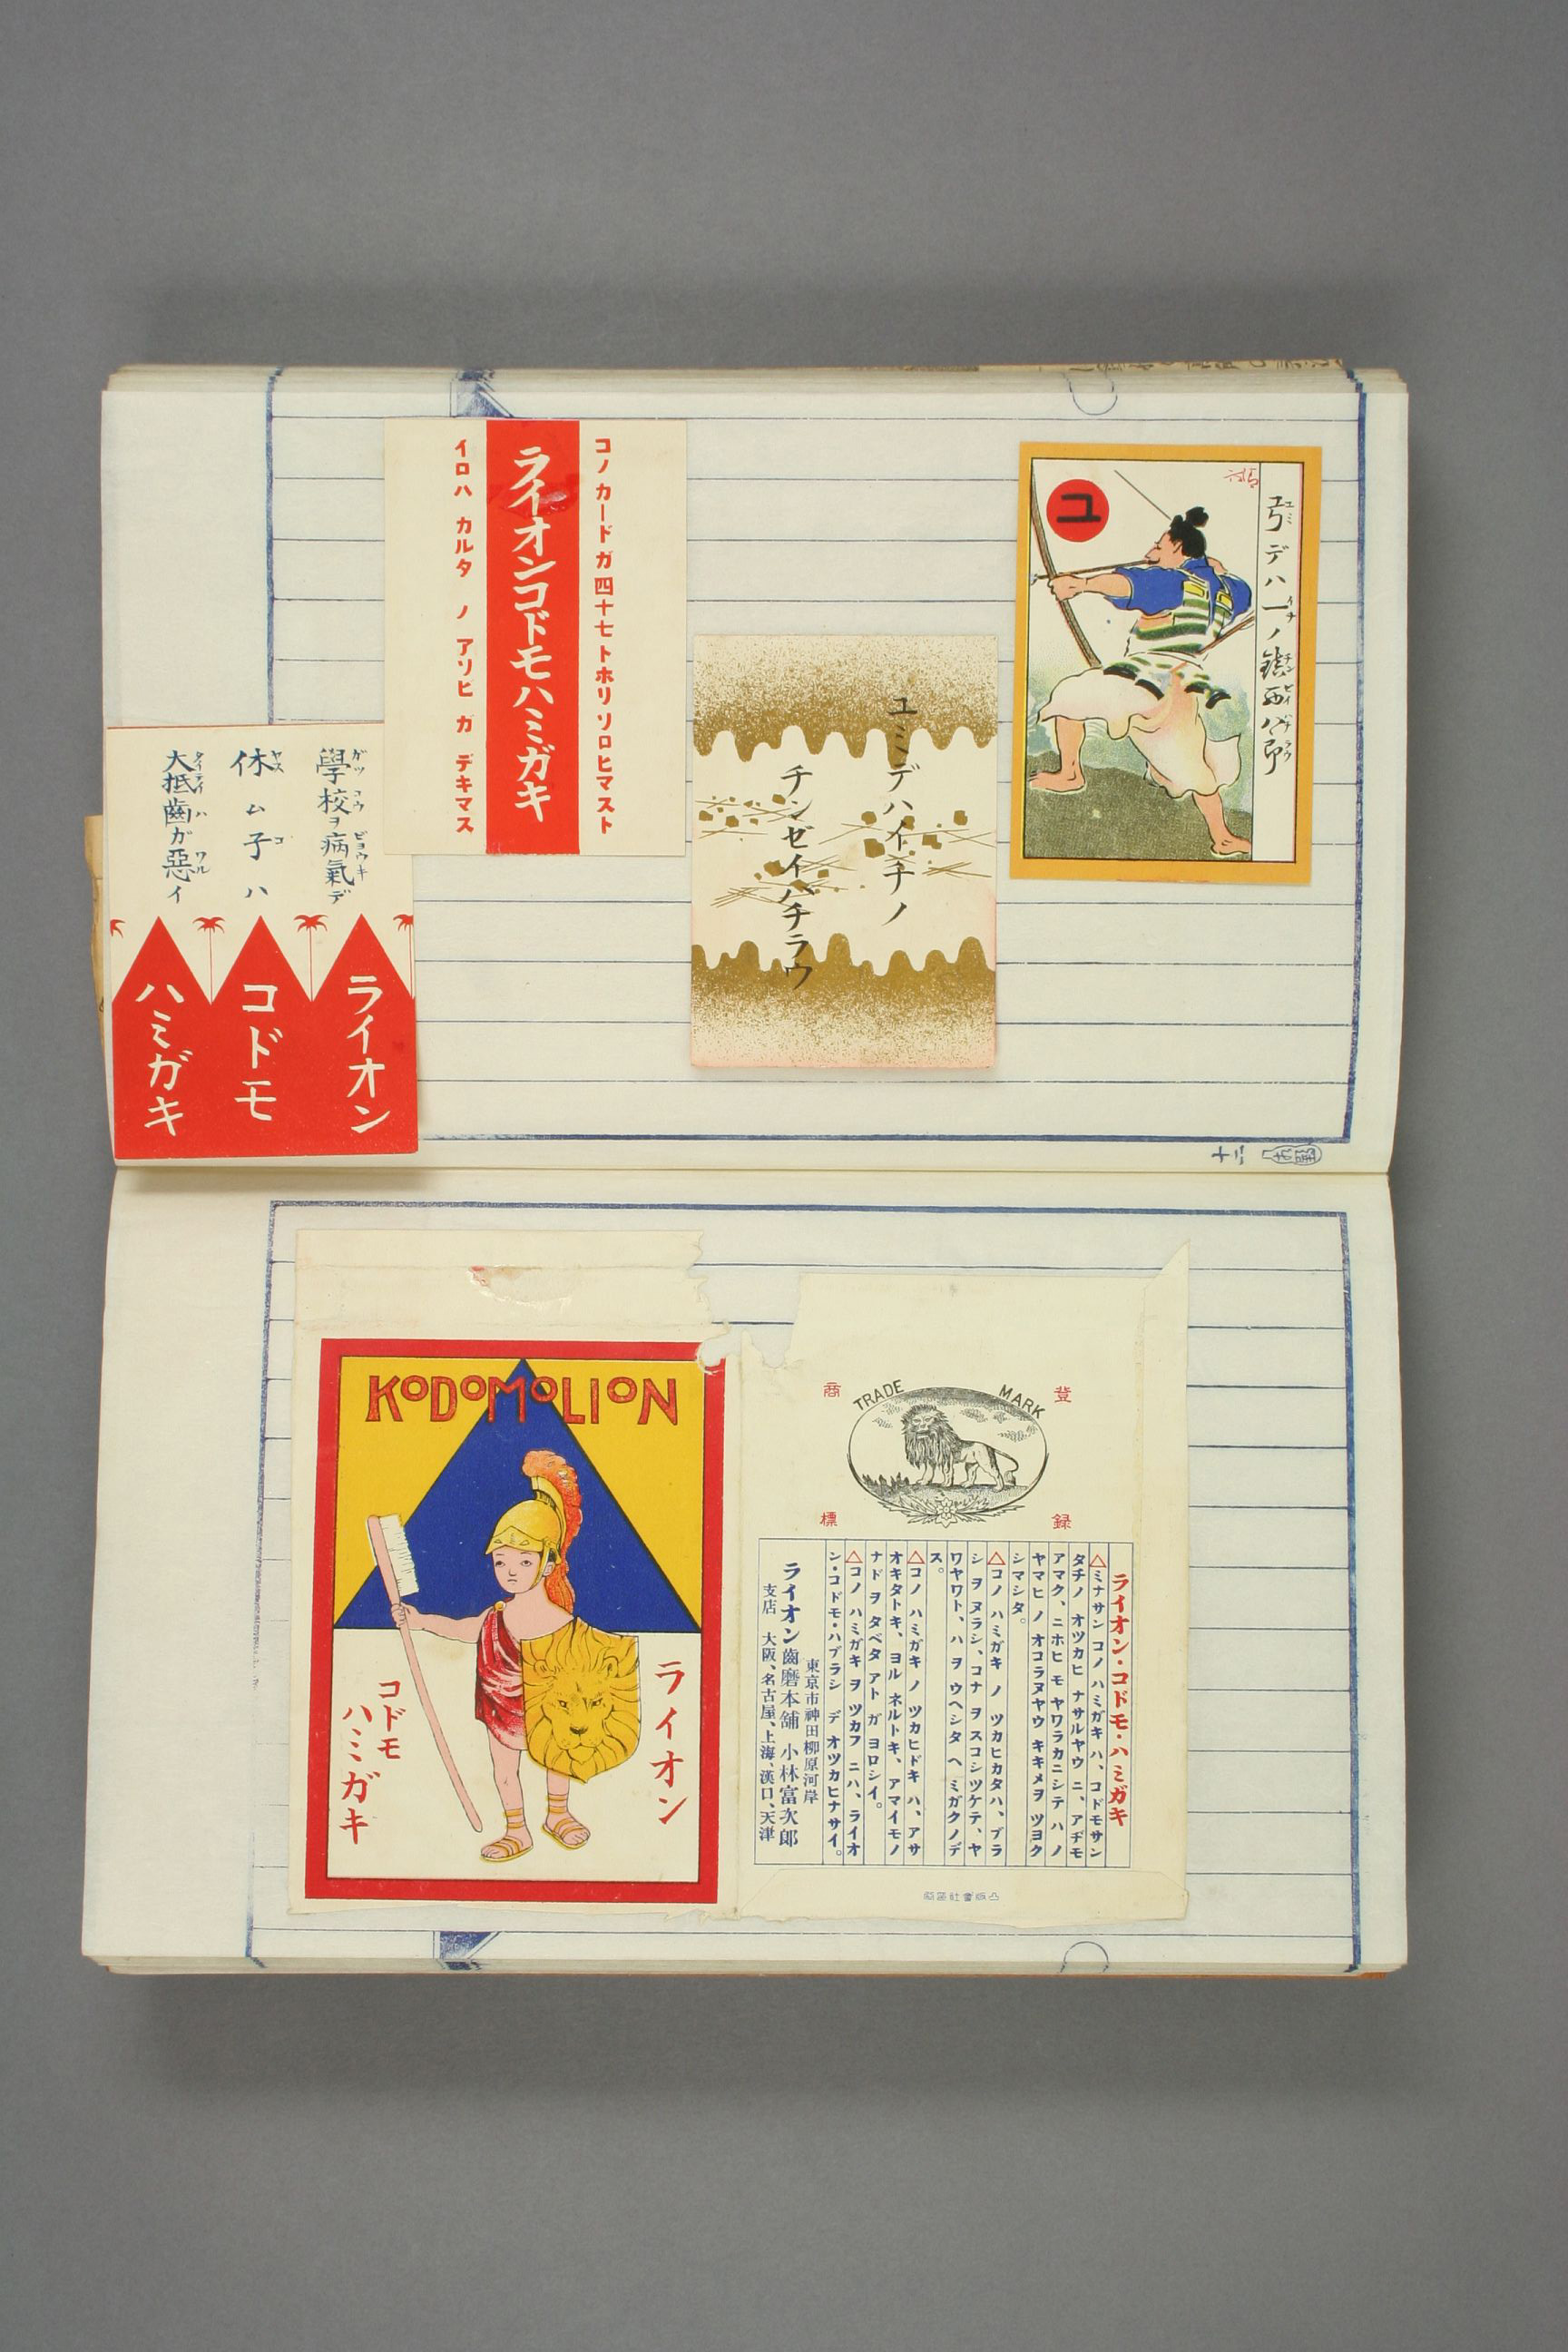 ユ
弓デハ一ノ鎮西八郎
ユミ イチ チンゼイハチラウ
ユミデハイチノ
チンゼイハチラウ
コノ カード ガ 四十七 トホリ ソロヒマスト
ライオンコドモハミガキ
イロハ カルタ ノ アソビ ガ デキマス
學校ヲ病氣デ
ガツコウ ビヨウキ
休ム子ハ
ヤス コ
大抵齒ガ惡イ
タイテイ ハ ワル
ライオン
コドモ
ハミガキ
十二
KODOMOLION
ライオン
コドモ
ハミガキ
TRADE MARK
登録
商標
ライオン・コドモ・ハミガキ
△ミナサン コノ ハミガキ ハ、コドモサン
タチノ オツカヒ ナサルヤウ ニ、アヂモ
アマク、ニホヒ モ ヤワラカニシテ ハ ノ
ヤマヒ ノ オコラヌヤウ キキメヲ ツヨク
シマシタ。
△コノ ハミガキ ノ ツカヒカタハ、ブラ
シ ヲ ヌラシ、コナ ヲ スコシツケテ、ヤ
ワヤワト、ハ ヲ ウヘシタ ヘ ミガクノデ
ス。
△コノ ハミガキ ノ ツカヒドキ ハ、アサ
オキタトキ、ヨル ネルトキ、アマイモノ
ナド ヲ タベタ アト ガ ヨロシイ。
△コノ ハミガキ ヲ ツカフ ニハ、ライオ
ン・コドモ・ハブラシ デ オツカヒナサイ。
東京市神田柳原河岸
ライオン齒磨本舗 小林富次郎
支店 大阪、名古屋、上海、漢口、天津